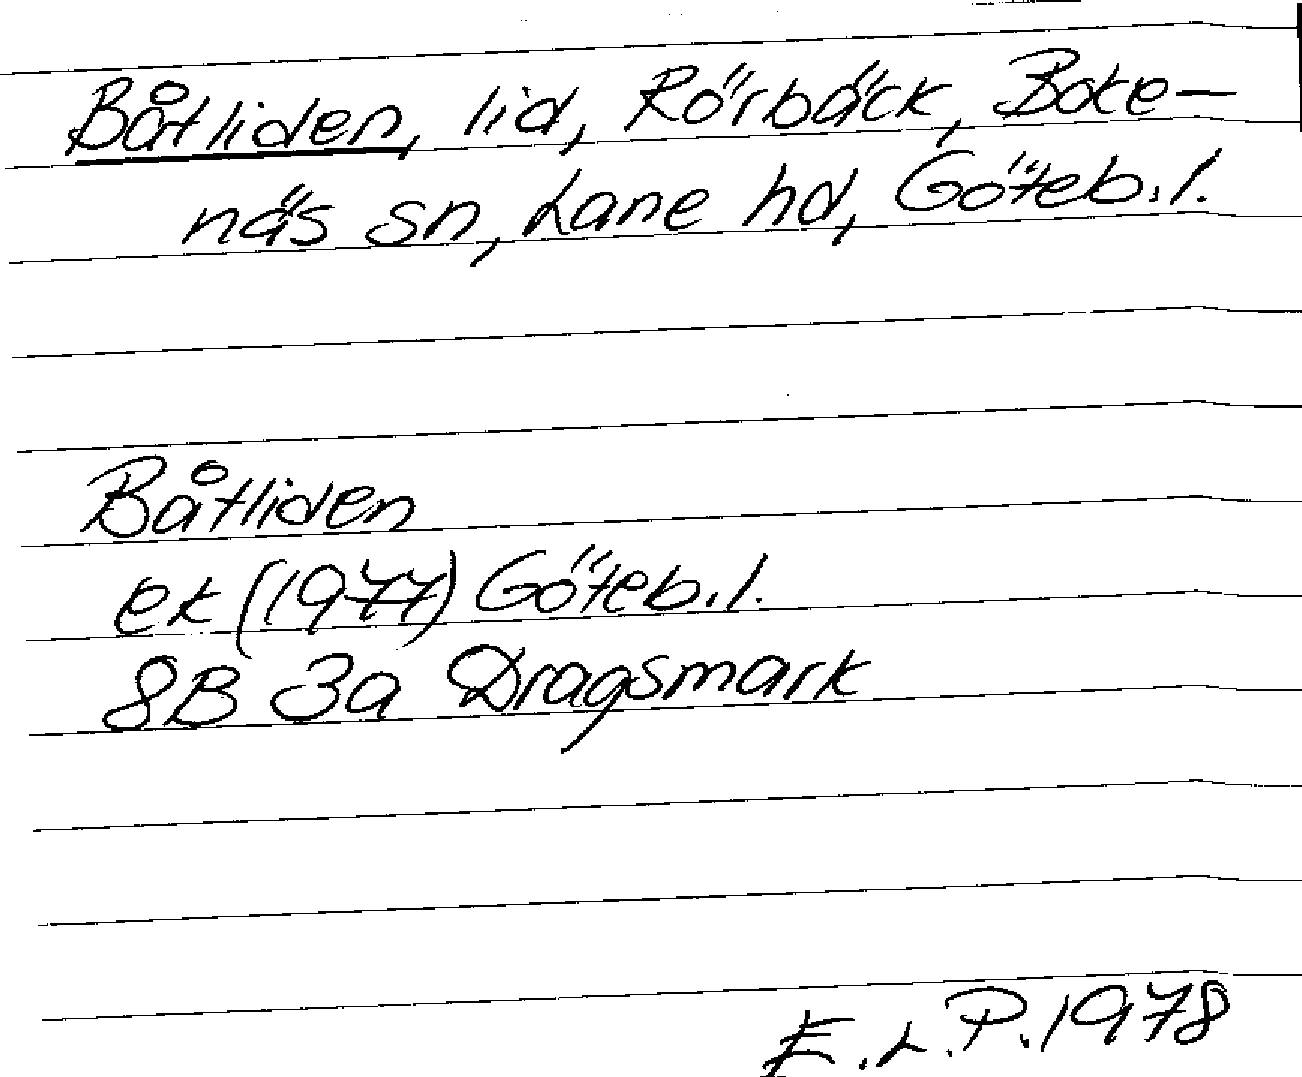 Båtliden, lid, Rörbäck, Boke-
näs sn, Lane hd, Göteb.l.
Båtliden
ek (1977) Göteb.l.
8B 3a Dragsmark
E.L.P. 1978